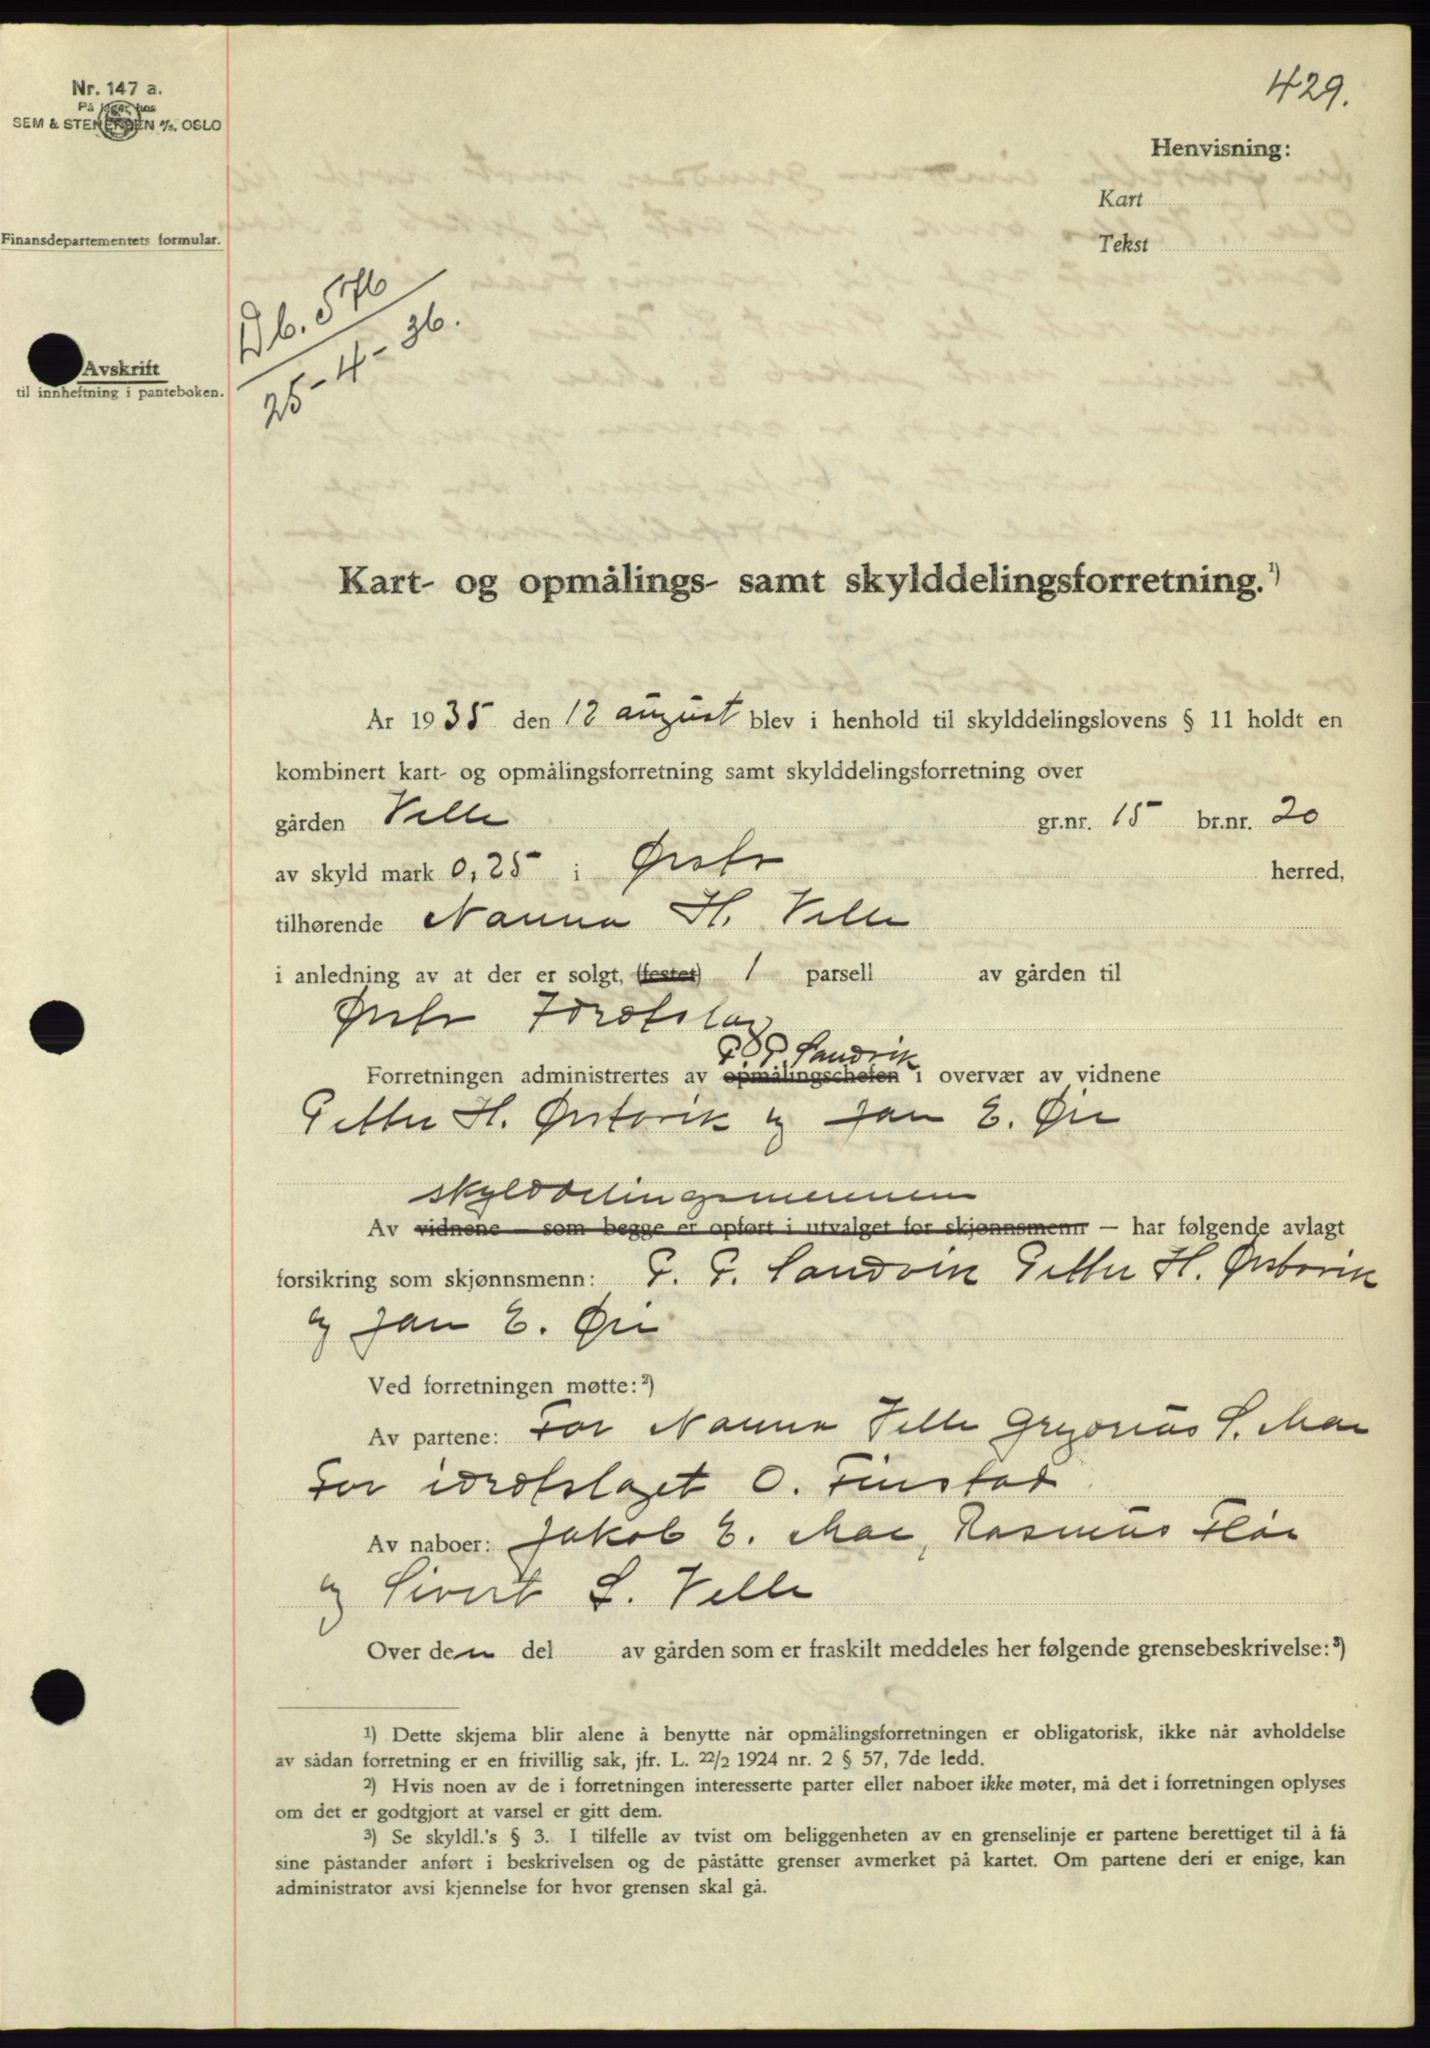 Nr. 147 a.
På lager hos
SEM & STENERSEN A/S. OSLO
Finansdepartementets formular.
Avskrift
til innheftning i panteboken.
429.
Henvisning:
Kart
Tekst
Db. 576
25-4-36.
Kart- og opmålings- samt skylddelingsforretning.¹)
År 1935 den 12 august blev i henhold til skylddelingslovens § 11 holdt en
kombinert kart- og opmålingsforretning samt skylddelingsforretning over
gården Velle gr.nr. 15 br.nr. 20
av skyld mark 0,25 i Ørsta herred,
tilhørende Nanna H. Velle
i anledning av at der er solgt, (festet) 1 parsell av gården til
Ørsta Idrotslag
P. P. Sandvik
Forretningen administrertes av opmålingschefen i overvær av vidnene
Petter H. Ørstavik og Jan E. Øie
skylddelingsmennene
Av vidnene — som begge er opført i utvalget for skjønnsmenn — har følgende avlagt
forsikring som skjønnsmenn: P. P. Sandvik Petter H. Ørstavik
og Jan E. Øie
Ved forretningen møtte:²)
Av partene: For Nanna Velle Gregorius S. Moe
For idrotslaget O. Finstad
Av naboer: Jakob E. Moe, Rasmus Fløe
og Sivert S. Velle
Over den del av gården som er fraskilt meddeles her følgende grensebeskrivelse:³)
¹) Dette skjema blir alene å benytte når opmålingsforretningen er obligatorisk, ikke når avholdelse
av sådan forretning er en frivillig sak, jfr. L. 22/2 1924 nr. 2 § 57, 7de ledd.
²) Hvis noen av de i forretningen interesserte parter eller naboer ikke møter, må det i forretningen oplyses
om det er godtgjort at varsel er gitt dem.
³) Se skyldl.'s § 3. I tilfelle av tvist om beliggenheten av en grenselinje er partene berettiget til å få
sine påstander anført i beskrivelsen og de påståtte grenser avmerket på kartet. Om partene deri er enige, kan
administrator avsi kjennelse for hvor grensen skal gå.